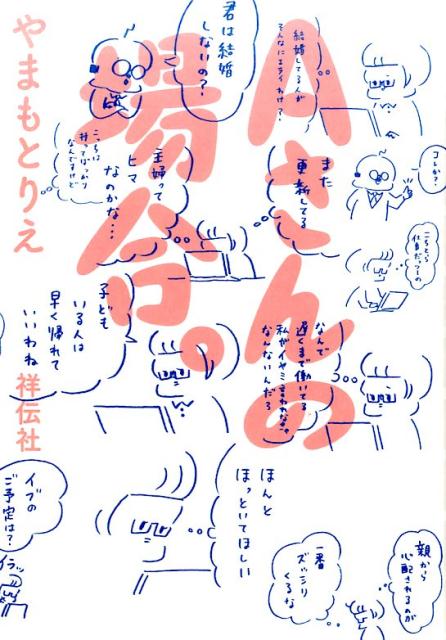 Aさんの
場合。
やまもとりえ
祥伝社
結婚してる人が
そんなにエライわけ?
君は結婚
しないの?
コレか?
また
更新してる
主婦って
ヒマ
なのかな…
こっちは
なんですけど
こちとら
仕事だっつーの
なんで
遅くまで働いてる
私がイヤミ言われなきゃ
なんないんだろ
子ども
いる人は
早く帰れて
いいわね
ほんと
ほっといてほしい
イブの
ご予定は?
イラッ
親から
心配されるのが
一番
ズッシリ
くるな